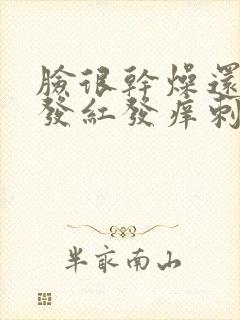 臉很幹燥還
發紅發癢刺
半畝南山